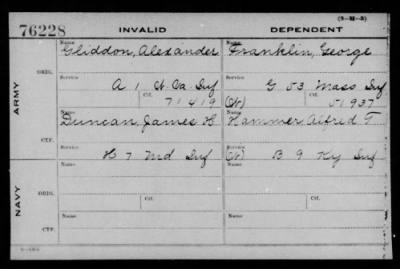 (3-21-3)
76228 INVALID DEPENDENT
Name Name
Gliddon, Alexander Franklin, George
ARMY
ORIG.
Service Service
A 1 Ct. Inf G 53 Mass Inf
Ctf. Ctf.
71419 (W) 51937
Name Name
Duncan, James H Hammer Alfred T
CTF.
Service Service
H 7 Md Inf (W) B 9 Ky Inf
Name Name
NAVY
ORIG.
Service Service
Ctf. Ctf.
Name Name
CTF.
Service Service